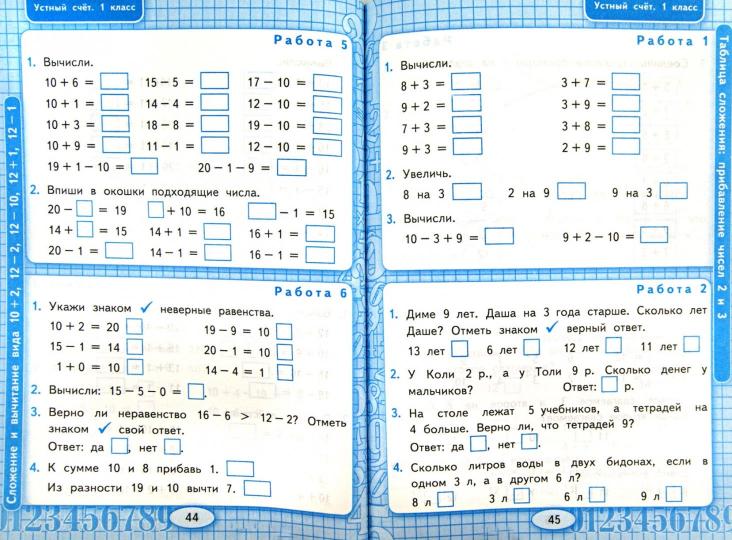 Устный счёт. 1 класс
Работа 5
1. Вычисли.
10 + 6 = 15 − 5 = 17 − 10 =
10 + 1 = 14 − 4 = 12 − 10 =
10 + 3 = 18 − 8 = 19 − 10 =
10 + 9 = 11 − 1 = 12 − 10 =
19 + 1 − 10 = 20 − 1 − 9 =
2. Впиши в окошки подходящие числа.
20 − = 19 + 10 = 16 − 1 = 15
14 + = 15 14 + 1 = 16 + 1 =
20 − 1 = 14 − 1 = 16 − 1 =
Работа 6
1. Укажи знаком ✓ неверные равенства.
10 + 2 = 20 19 − 9 = 10
15 − 1 = 14 20 − 1 = 10
1 + 0 = 10 14 − 4 = 1
2. Вычисли: 15 − 5 − 0 = .
3. Верно ли неравенство 16 − 6 > 12 − 2? Отметь
знаком ✓ свой ответ.
Ответ: да , нет .
4. К сумме 10 и 8 прибавь 1.
Из разности 19 и 10 вычти 7.
Сложение и вычитание вида 10 + 2, 12 − 2, 12 − 10, 12 + 1, 12 − 1
0123456789
44
Устный счёт. 1 класс
Работа 1
1. Вычисли.
8 + 3 = 3 + 7 =
9 + 2 = 3 + 9 =
7 + 3 = 3 + 8 =
9 + 3 = 2 + 9 =
2. Увеличь.
8 на 3 2 на 9 9 на 3
3. Вычисли.
10 − 3 + 9 = 9 + 2 − 10 =
Работа 2
1. Диме 9 лет. Даша на 3 года старше. Сколько лет
Даше? Отметь знаком ✓ верный ответ.
13 лет 6 лет 12 лет 11 лет
2. У Коли 2 р., а у Толи 9 р. Сколько денег у
мальчиков? Ответ: р.
3. На столе лежат 5 учебников, а тетрадей на
4 больше. Верно ли, что тетрадей 9?
Ответ: да , нет .
4. Сколько литров воды в двух бидонах, если в
одном 3 л, а в другом 6 л?
8 л 3 л 6 л 9 л
Таблица сложения: прибавление чисел 2 и 3
45
0123456789